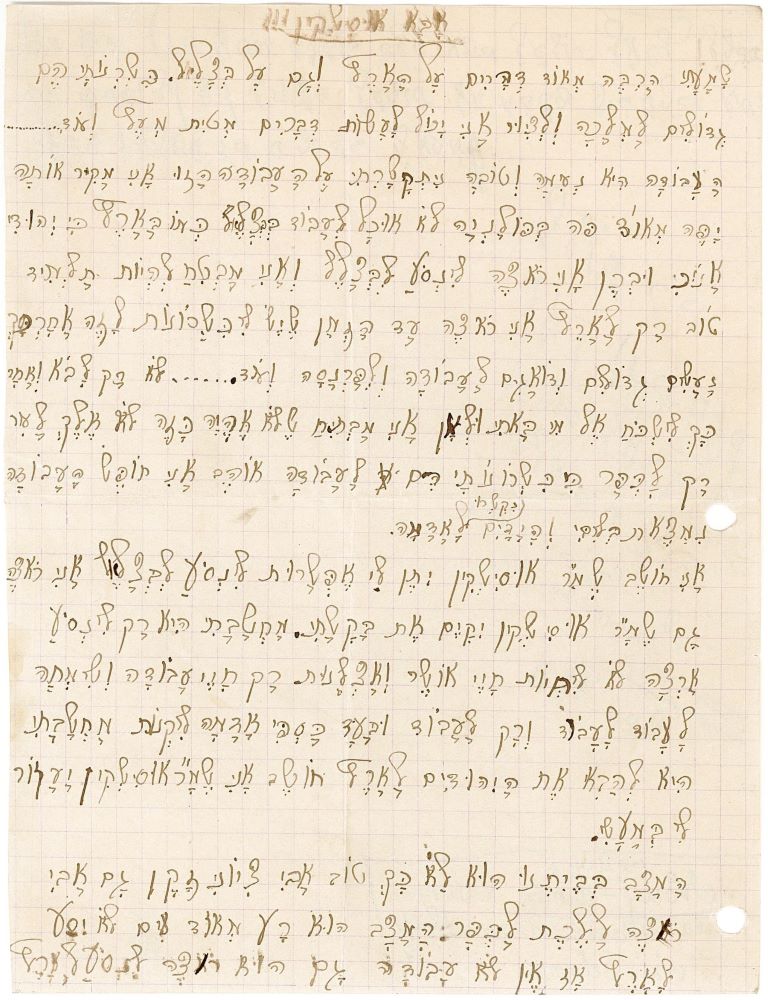 אָבָא אוּסִישְׁקִין !!!
שָׁמַעְתִּי הַרְבֵּה מְאוֹד דְבָרִים עַל הָאָרֶץ וְגַם עַל בְּצַלְאֵל. כִּשְׁרוֹנוֹתַי הֵם
גְדוֹלִים לִמְלָכָה וּלְצִיּוּר אֲנִי יָכוֹל לַעֲשׂוֹת דְבָרִים מְעֵץ וְעוֹד..........
הָעֲבוֹדָה הִיא נְעִימָה וְטוֹבָה נִתְקַשַּׁרְתִּי עַל הָעֲבוֹדָה הַזוֹ אֲנִי מַכִּיר אוֹתָהּ
יָפֶה מְאוֹד פֹּה בְּפוֹלַנְיָה לֹא אוּכַל לַעֲבוֹד בִּבְצַלְאֵל כְּמוֹ בָּאָרֶץ כִּי יְהוּדִי
אָנֹכִי וּבְכֵן אֲנִי רֹאצֶה לִינְסֹעַ לִבְצַלְאֵל וְאֲנִי מַבְטִחַ לִהְיוֹת תַלְמִיד
טוֹב רַק לָאָרֶץ אֲנִי רֹאצֶה עַד הַזְמַן שֶׁיֵשׁ לִי כִּשְׁרוֹנוֹת לָזֶה אַחַר כָּךְ
נַעֲשִׂים גְדוֹלִים וְדוֹאֲגִים לַעֲבוֹדָה וּלְפַרְנָסָה וְעוֹד....... לֹא רַק לָבֹא וְאַחֲרֵי
כָּךְ לִישְׁכֹּחַ אֶל מִי בָּאתִי אֲנִי מַבְטִיחַ שֶׁלֹא אֶהְיֶה כָּזֶה לֹא אֵלֵךְ לָעִיר
רַק לַכְּפָר כִּי כִּשְׁרוֹנוֹתַי הֵם לַעֲבוֹדָה אוֹהֵב אֲנִי חוֹפֵשׂ הָעֲבוֹדָה
נִמְצֵאת בְּלִבִּי וְהַיָדַיִם לָאֲדָמָה.
אֲנִי חוֹשֵׁב שֶׁמַר אוּסִישְׁקִין יִתֵּן לִי אֶפְשָׁרוּת לִינְסֹעַ לִבְצַלְאֵל אֲנִי רֹאצֶה
גַם שֶׁמַר אוּסִישְׁקִין יְקַיֵים אֶת בַּקָשָׁתִי. מַחְשַׁבְתִּי הִיא רַק לִינְסֹעַ
אַרְצָה לֹא לִהְיוֹת חַיֵי אוֹשֶׁר וְעַצְלָנוּת רַק חַיֵי עֲבוֹדָה וְשִׂמְחָה
לַעֲבוֹד לַעֲבוֹד וְרַק לַעֲבוֹד וּבְעַד כַּסְפִּי אֲדָמָה לִקְנוֹת מַחְשַׁבְתִּי
הִיא לְהָבִא אֶת הַיְהוּדִים לָאָרֶץ חוֹשֵׁב אֲנִי שֶׁמַר אוּסִישְׁקִין יַעֲזוֹר
לִי בְּמַעֲשַׂי.
הַמַצָב בְּבֵיתֵנוּ הוּא לֹא כָּךְ טוֹב אָבִי צִיוֹנִי זָקֵן גַם אָבִי
רֹאצֶה לָלֶכֶת לַכְּפָר הַמַצָב הוּא רָע מְאוֹד עִים לֹא יִסַע
לָאָרֶץ אָז אֵין לֹא עֲבוֹדָה גַם הוּא רֹאצֶה לִנְסֹעַ לָאָרֶץ